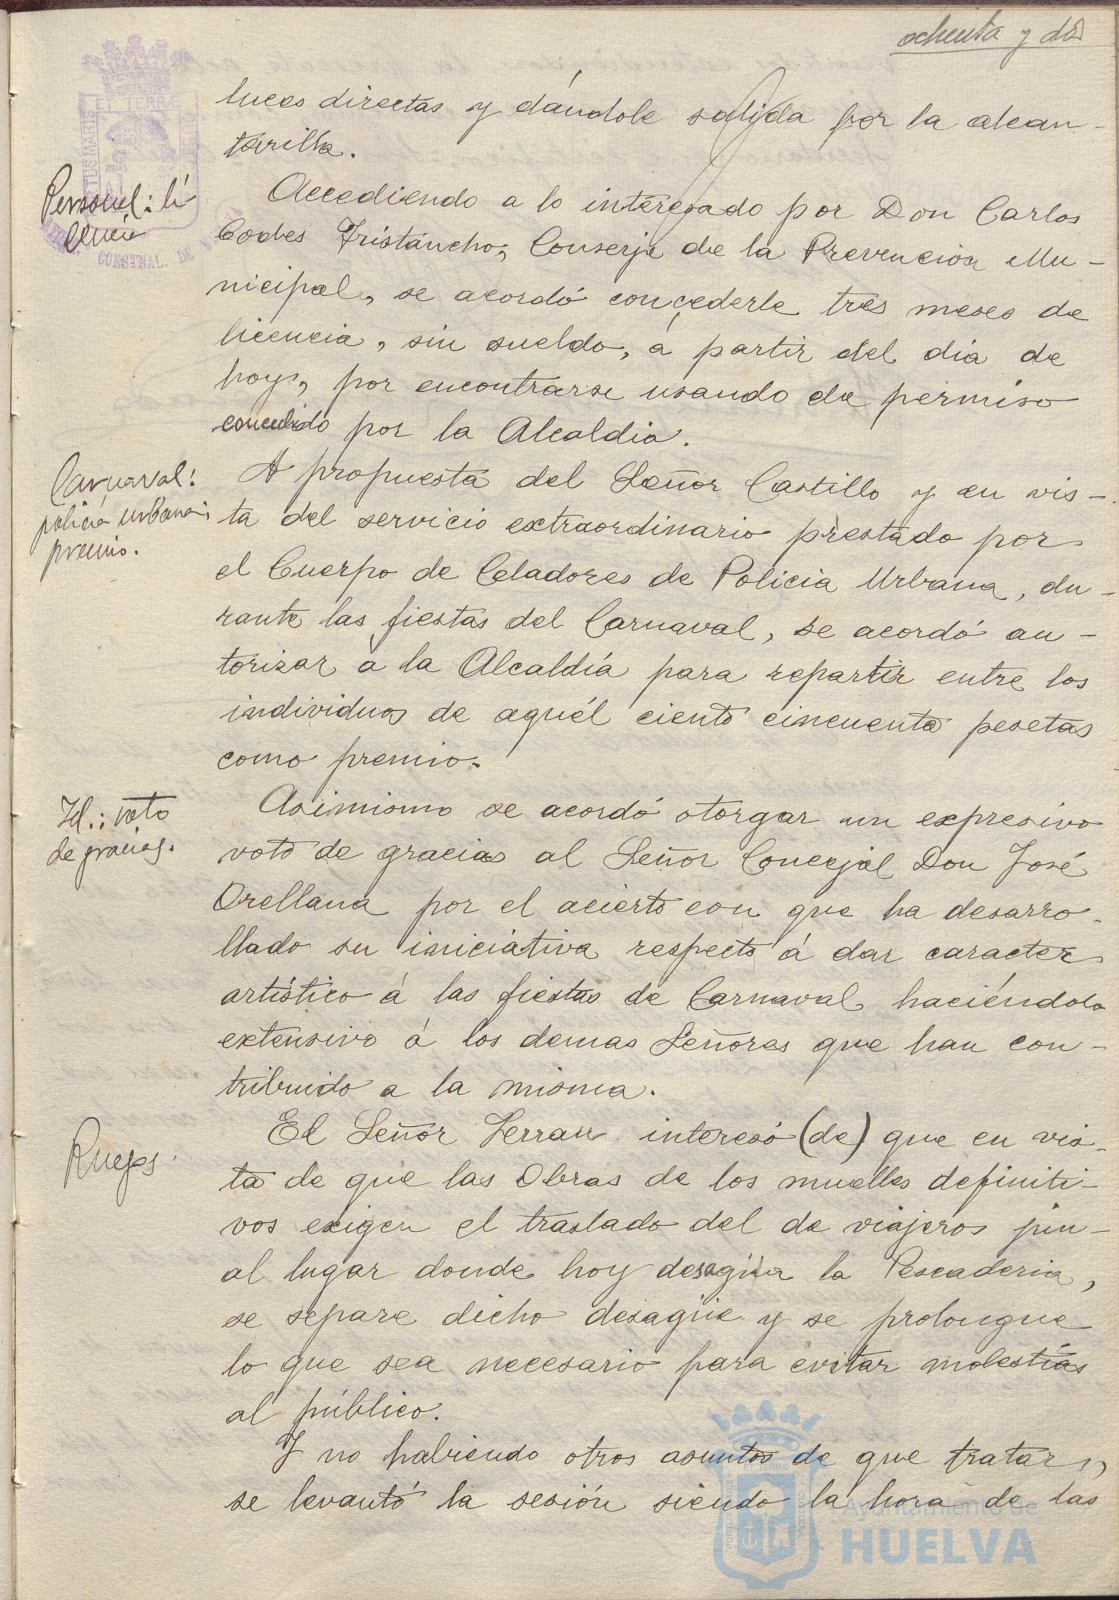 ochenta y dos
luces directas y dándole salida por la alcan-
tarilla.
Personal: li
cencia
Accediendo a lo interesado por Don Carlos
Codes Tristancho, Conserje de la Prevención Mu-
nicipal, se acordó concederle tres meses de
licencia, sin sueldo, á partir del dia de
hoy, por encontrarse usando de permiso
concedido por la Alcaldia.
Carnaval:
policía urbana:
premio.
A propuesta del Señor Castillo y en vis-
ta del servicio extraordinario prestado por
el Cuerpo de Celadores de Policia Urbana, du-
rante las fiestas del Carnaval, se acordó au-
torizar a la Alcaldía para repartir entre los
individuos de aquél ciento cincuenta pesetas
como premio.
Id.: voto
de gracias.
Asimismo se acordó otorgar un expresivo
voto de gracias al Señor Concejal Don José
Orellana por el acierto con que ha desarro-
llado su iniciativa respecto á dar caracter
artístico á las fiestas de Carnaval haciéndolo
extensivo á los demas Señores que han con-
tribuido a la misma.
Ruegos.
El Señor Terran interesó (de) que en vis-
ta de que las Obras de los muelles definiti-
vos exigen el traslado del de viajeros jun-
al lugar donde hoy desagüa la Pescaderia,
se separe dicho desagüe y se prolongue
lo que sea necesario para evitar molestias
al público.
Y no habiendo otros asuntos de que tratar,
se levantó la sesión siendo la hora de las
Ayuntamiento de
HUELVA